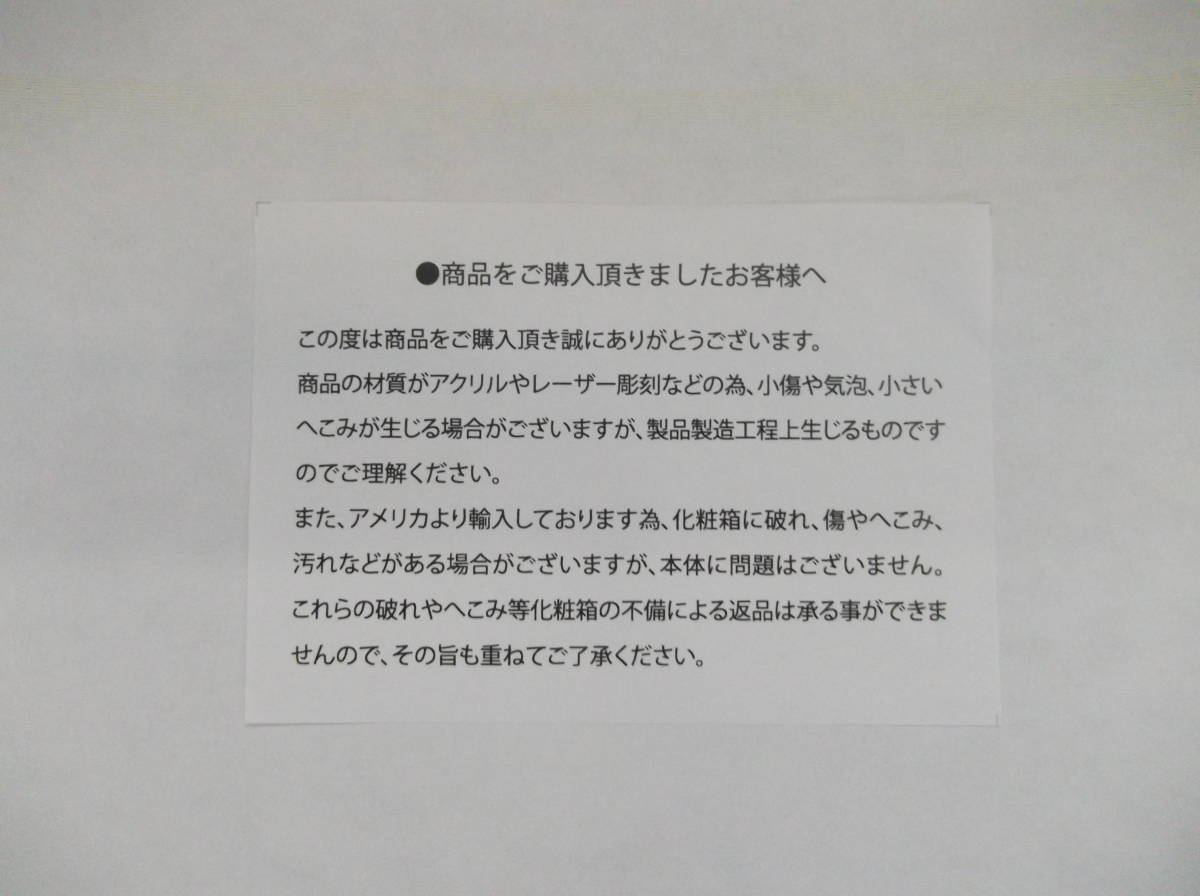 ●商品をご購入頂きましたお客様へ
この度は商品をご購入頂き誠にありがとうございます。
商品の材質がアクリルやレーザー彫刻などの為、小傷や気泡、小さい
へこみが生じる場合がございますが、製品製造工程上生じるものです
のでご理解ください。
また、アメリカより輸入しております為、化粧箱に破れ、傷やへこみ、
汚れなどがある場合がございますが、本体に問題はございません。
これらの破れやへこみ等化粧箱の不備による返品は承る事ができま
せんので、その旨も重ねてご了承ください。